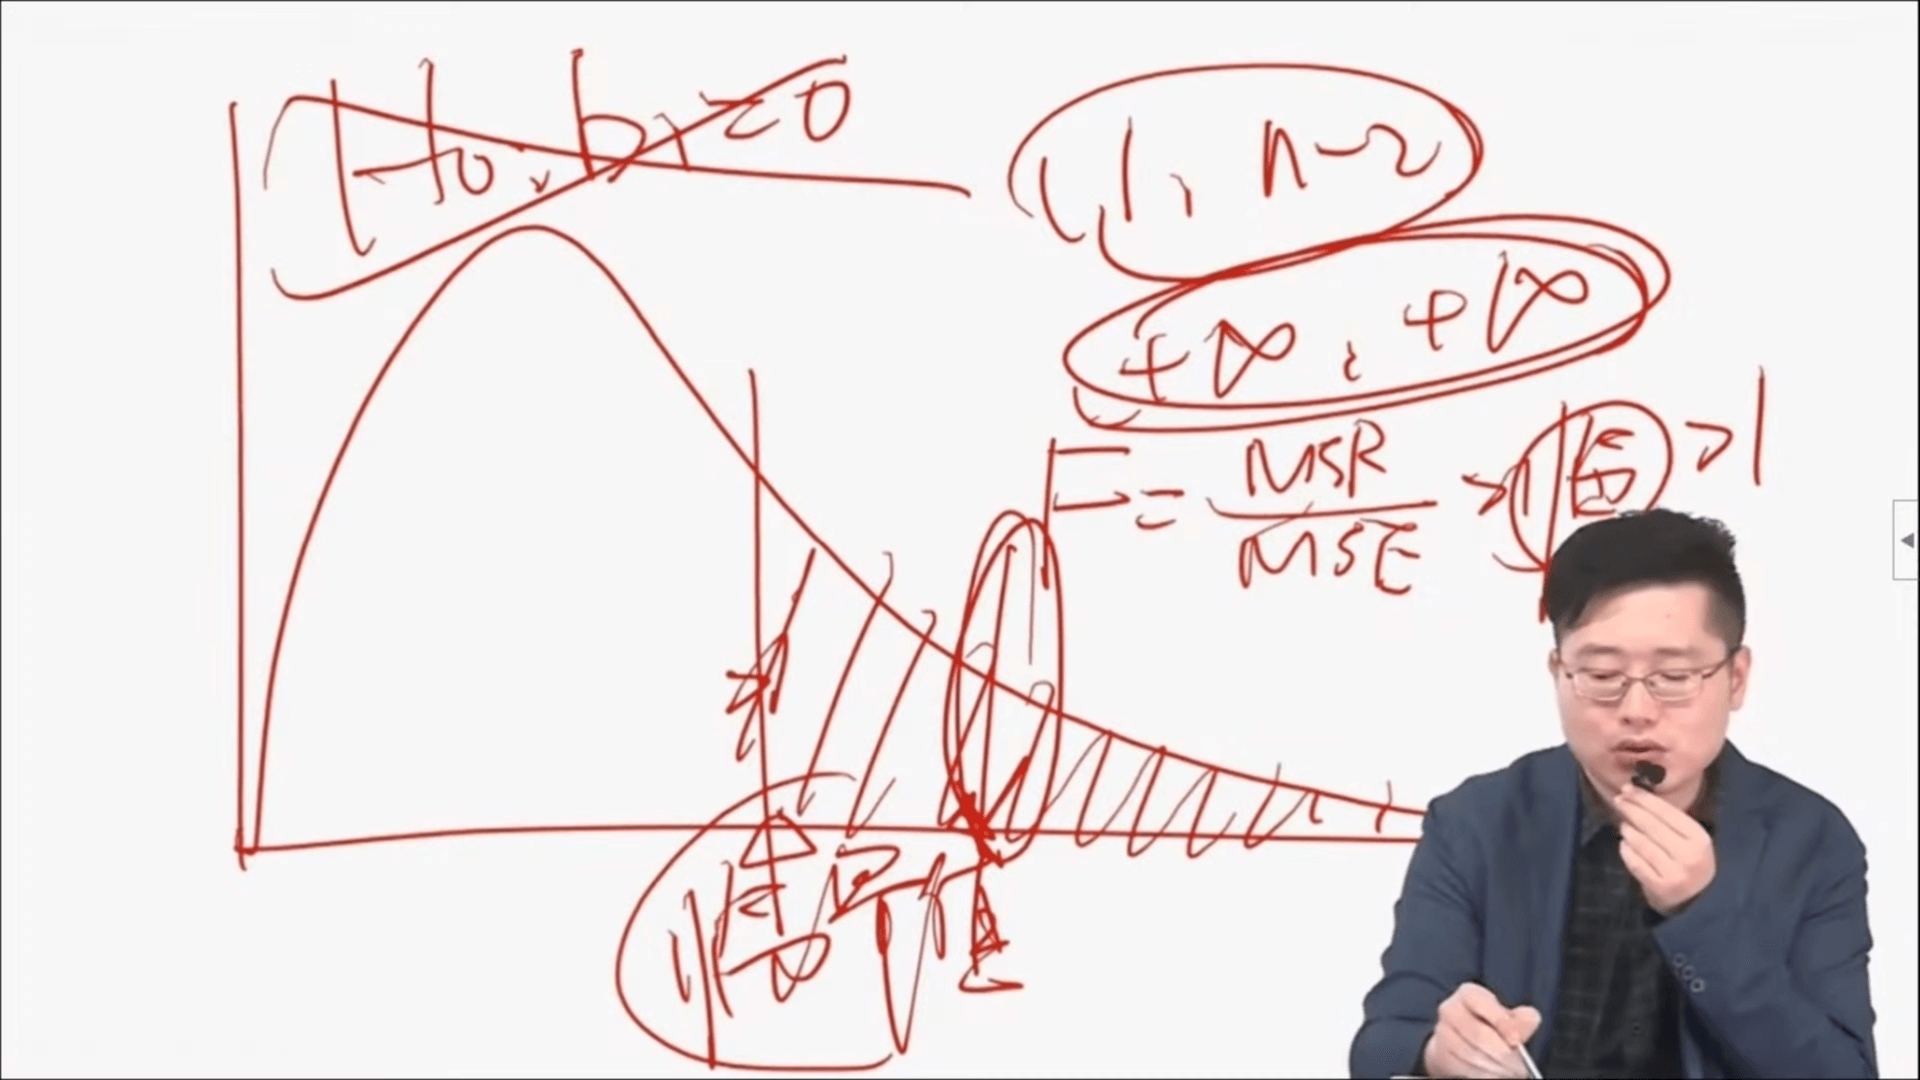 H₀: b₁=0
(1, n-2
+∞, +∞
F = MSR/MSE > 临 >1
拒
临界值